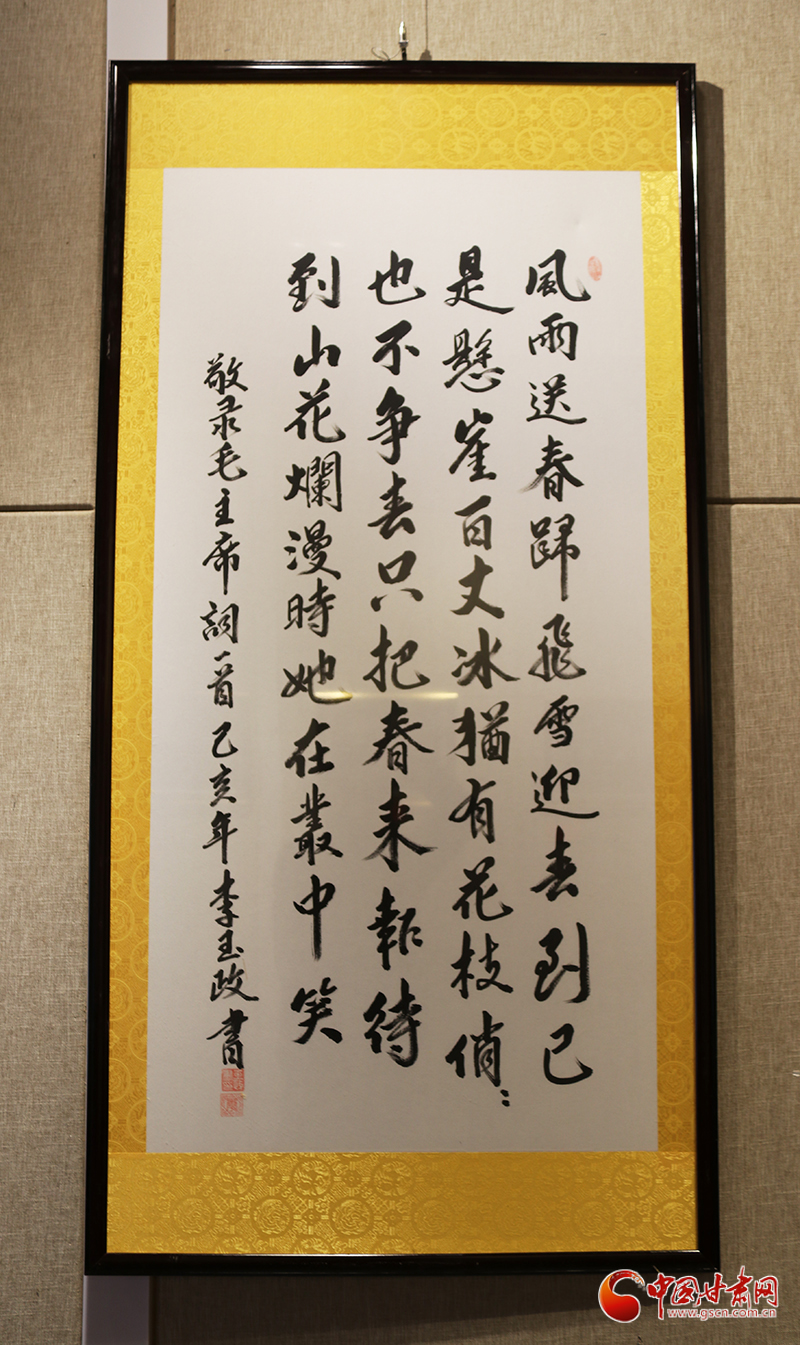 風雨送春歸飛雪迎春到已
是懸崖百丈冰猶有花枝俏〻
也不争春只把春来報待
到山花爛漫時她在叢中笑
敬录毛主席詞一首乙亥年李玉政書
中国甘肃网
www.gscn.com.cn